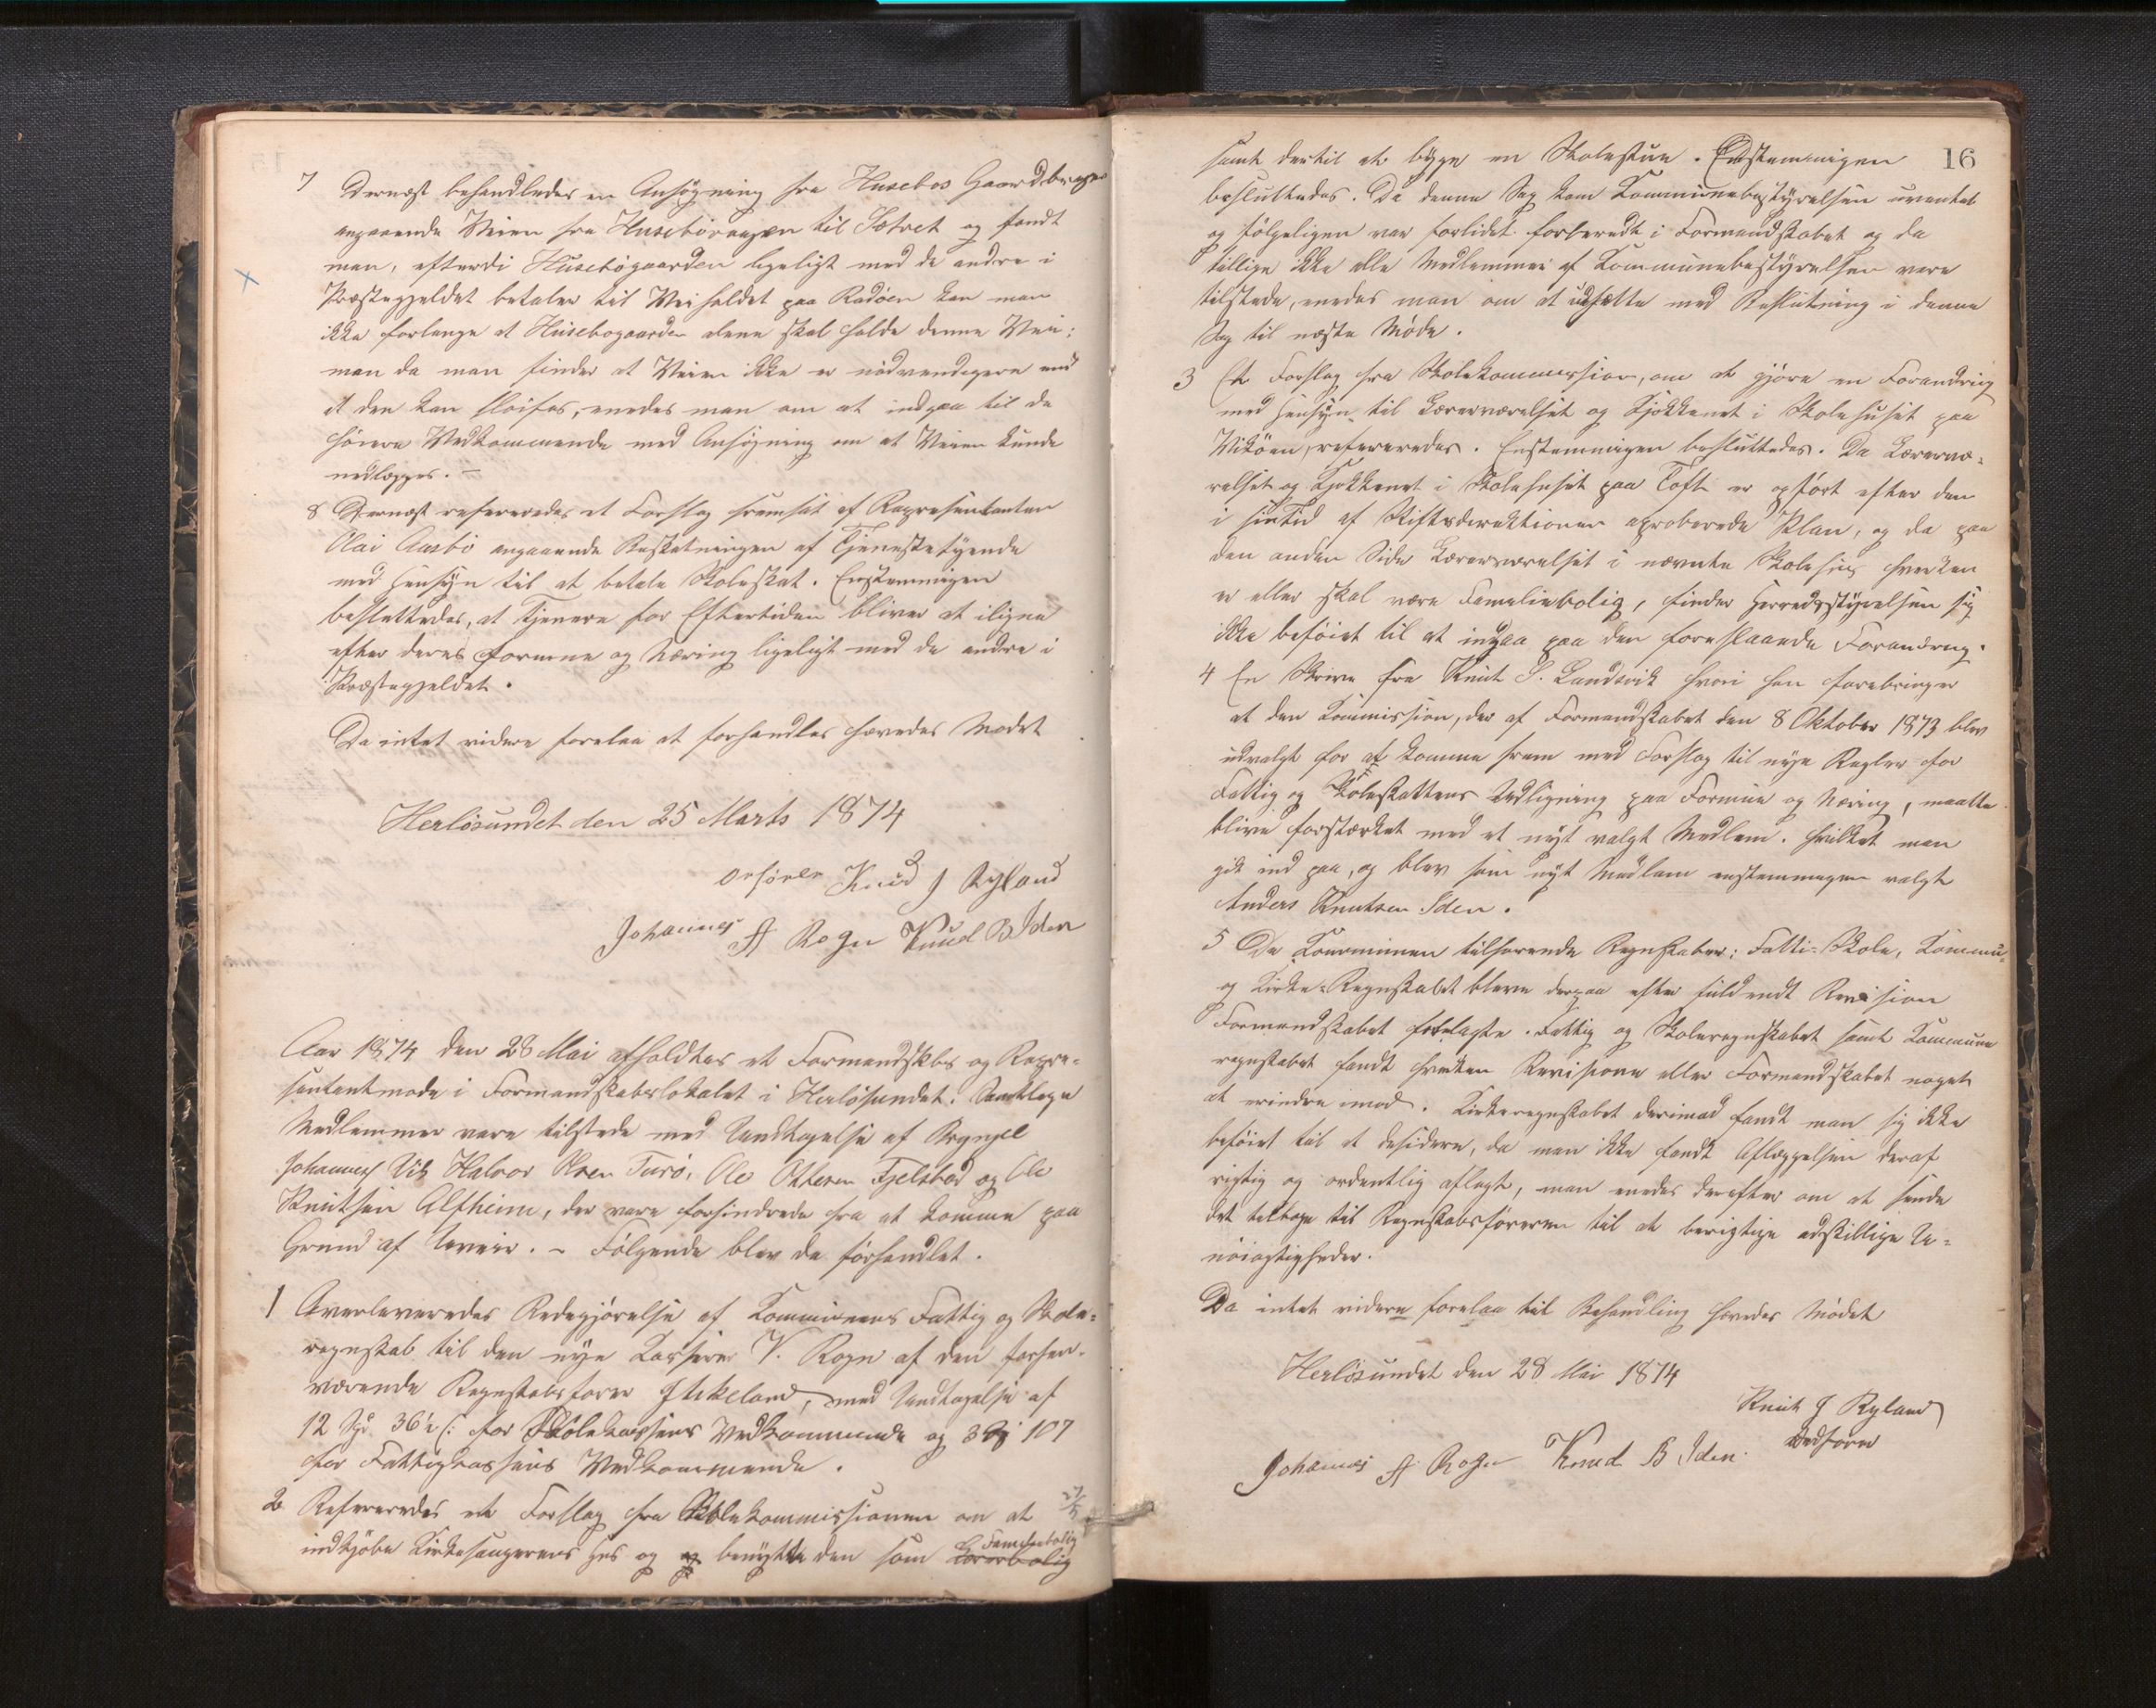 7 Dernæst behandledes en Ansøgning fra Husebøs Gaardbruger
angaaende Veien fra Husebøvaagen til Sætret og fandt
man, efterdi Husebøgaarden ligeligt med de andre i
Præstegjeldet betaler til Veiholdet paa Radøen kan man
ikke forlange at Husebøgaarden alene skal holde denne Vei:
men da man finder at Veien ikke er nødvendigere end
at den kan sløifes, enedes man om at indgaa til de
høiere Vedkommende med Ansøgning om at Veien kunde
nedlægges. –
8 Dernæst refereredes et Forslag fremsat af Repræsentanten
Olai Aarbø angaaende Beskatningen af Tjenestetyende
med Hensyn til at betale Skoleskat. Enstemmigen
besluttedes, at Tjenere for Eftertiden bliver at iligne
efter deres Formue og Næring ligeligt med de andre i
Præstegjeldet.
Da intet videre forelaa at forhandles hævedes Mødet
Herløsundet den 25 Marts 1874
orfører Knud J Ryland
Johannes A Rogn Knud B Iden
Aar 1874 den 28 Mai afholdtes et Formandskbs og Repræ-
sentantmøde i Formandskabslokalet i Herløsundet. Samtlege
Medlemmer vare tilstede med Undtagelse af Brynjel
Johannes Vik Halvor Olsen Turø, Ole Ottesen Fjelstad og Ole
Knutsen Altheim, der vare forhindrede fra at komme paa
Grund af Uveir. – Følgende blev da forhandlet.
1 Overleveredes Redegjørelse af Kommunens Fattig og Skole-
regnskab til den nye Kasserer V. Rogn af den forhen-
værende Regnskabsfører J Askeland, med Undtagelse af
12 Spd 36 1/2 ß: for Skolekassens Vedkommende og 107
for Fattigkassens Vedkommende.
2 Refereredes et Forslag fra Skolekommissionen om at
indkjøbe Kirkesangerens Hus og benytte den som Lærerbolig Familiebolig
16
samt dertil at bygge en Skolestue. Enstemmigen
besluttedes. Da denne Sag kom Kommunebestyrelsen uventet
og følgeligen var forlidet forberedt i Formandskabet og da
tillige ikke alle Medlemmer af Kommunebestyrelsen vare
tilstede, enedes man om at udsætte med Beslutning i denne
Sag til næste Møde.
3 Et Forslag fra Skolekommission, om at gjøre en Forandring
med Hensyn til Lærerværelset og Kjøkkenet i Skolehuset paa
Vikøen, refereredes. Enstemmigen besluttedes. Da Lærervæ-
relset og Kjøkkenet i Skolehuset paa Toft er opført efter den
i sin Tid af Stiftsdirektionen aproberede Plan, og da paa
den anden Side Lærerværelset i nævnte Skolehus hverken
er eller skal være Familiebolig, finder Herredsstyrelsen sig
ikke beføiet til at indgaa paa den foreslaaede Forandring.
4 En Skrive fra Knut S. Landsvik hvori han forebringer
at den Kommission, der af Formandskabet den 8 Oktober 1873 blev
udvalgt for at komme frem med Forslag til nye Regler for
Fattig og Skoleskattens Udligning paa Formue og Næring, maatte
blive forstærket med et nyt valgt Medlem. hvilket man
gik ind paa, og blev som nyt Medlem enstemmigen valgt
Anders Knutsen Iden.
5 De Kommunen tilhørende Regnskaber: Fatti- Skole, Kommu-
og Kirke-Regnskabet bleve derpaa efter fuldendt Revision
Formandskabet forelagte. Fattig og Skoleregnskabet samt Kommune
regnskabet fandt hverken Revisione eller Formandskabet noget
at erindre imod. Kirkeregnskabet derimod fandt man sig ikke
beføiet til at desidere, da man ikke fandt Aflæggelsen deraf
rigtig og ordentlig aflagt, man enedes derefter om at sende
det tilbage til Regnskabsføreren til at berigtige adskillige U-
nøiagtigheder.
Da intet videre forelaa til Behandling hævedes Mødet
Herløsundet den 28 Mai 1874
Knut J Ryland
Ordfører
Johannes A Rogn Knud B Iden.